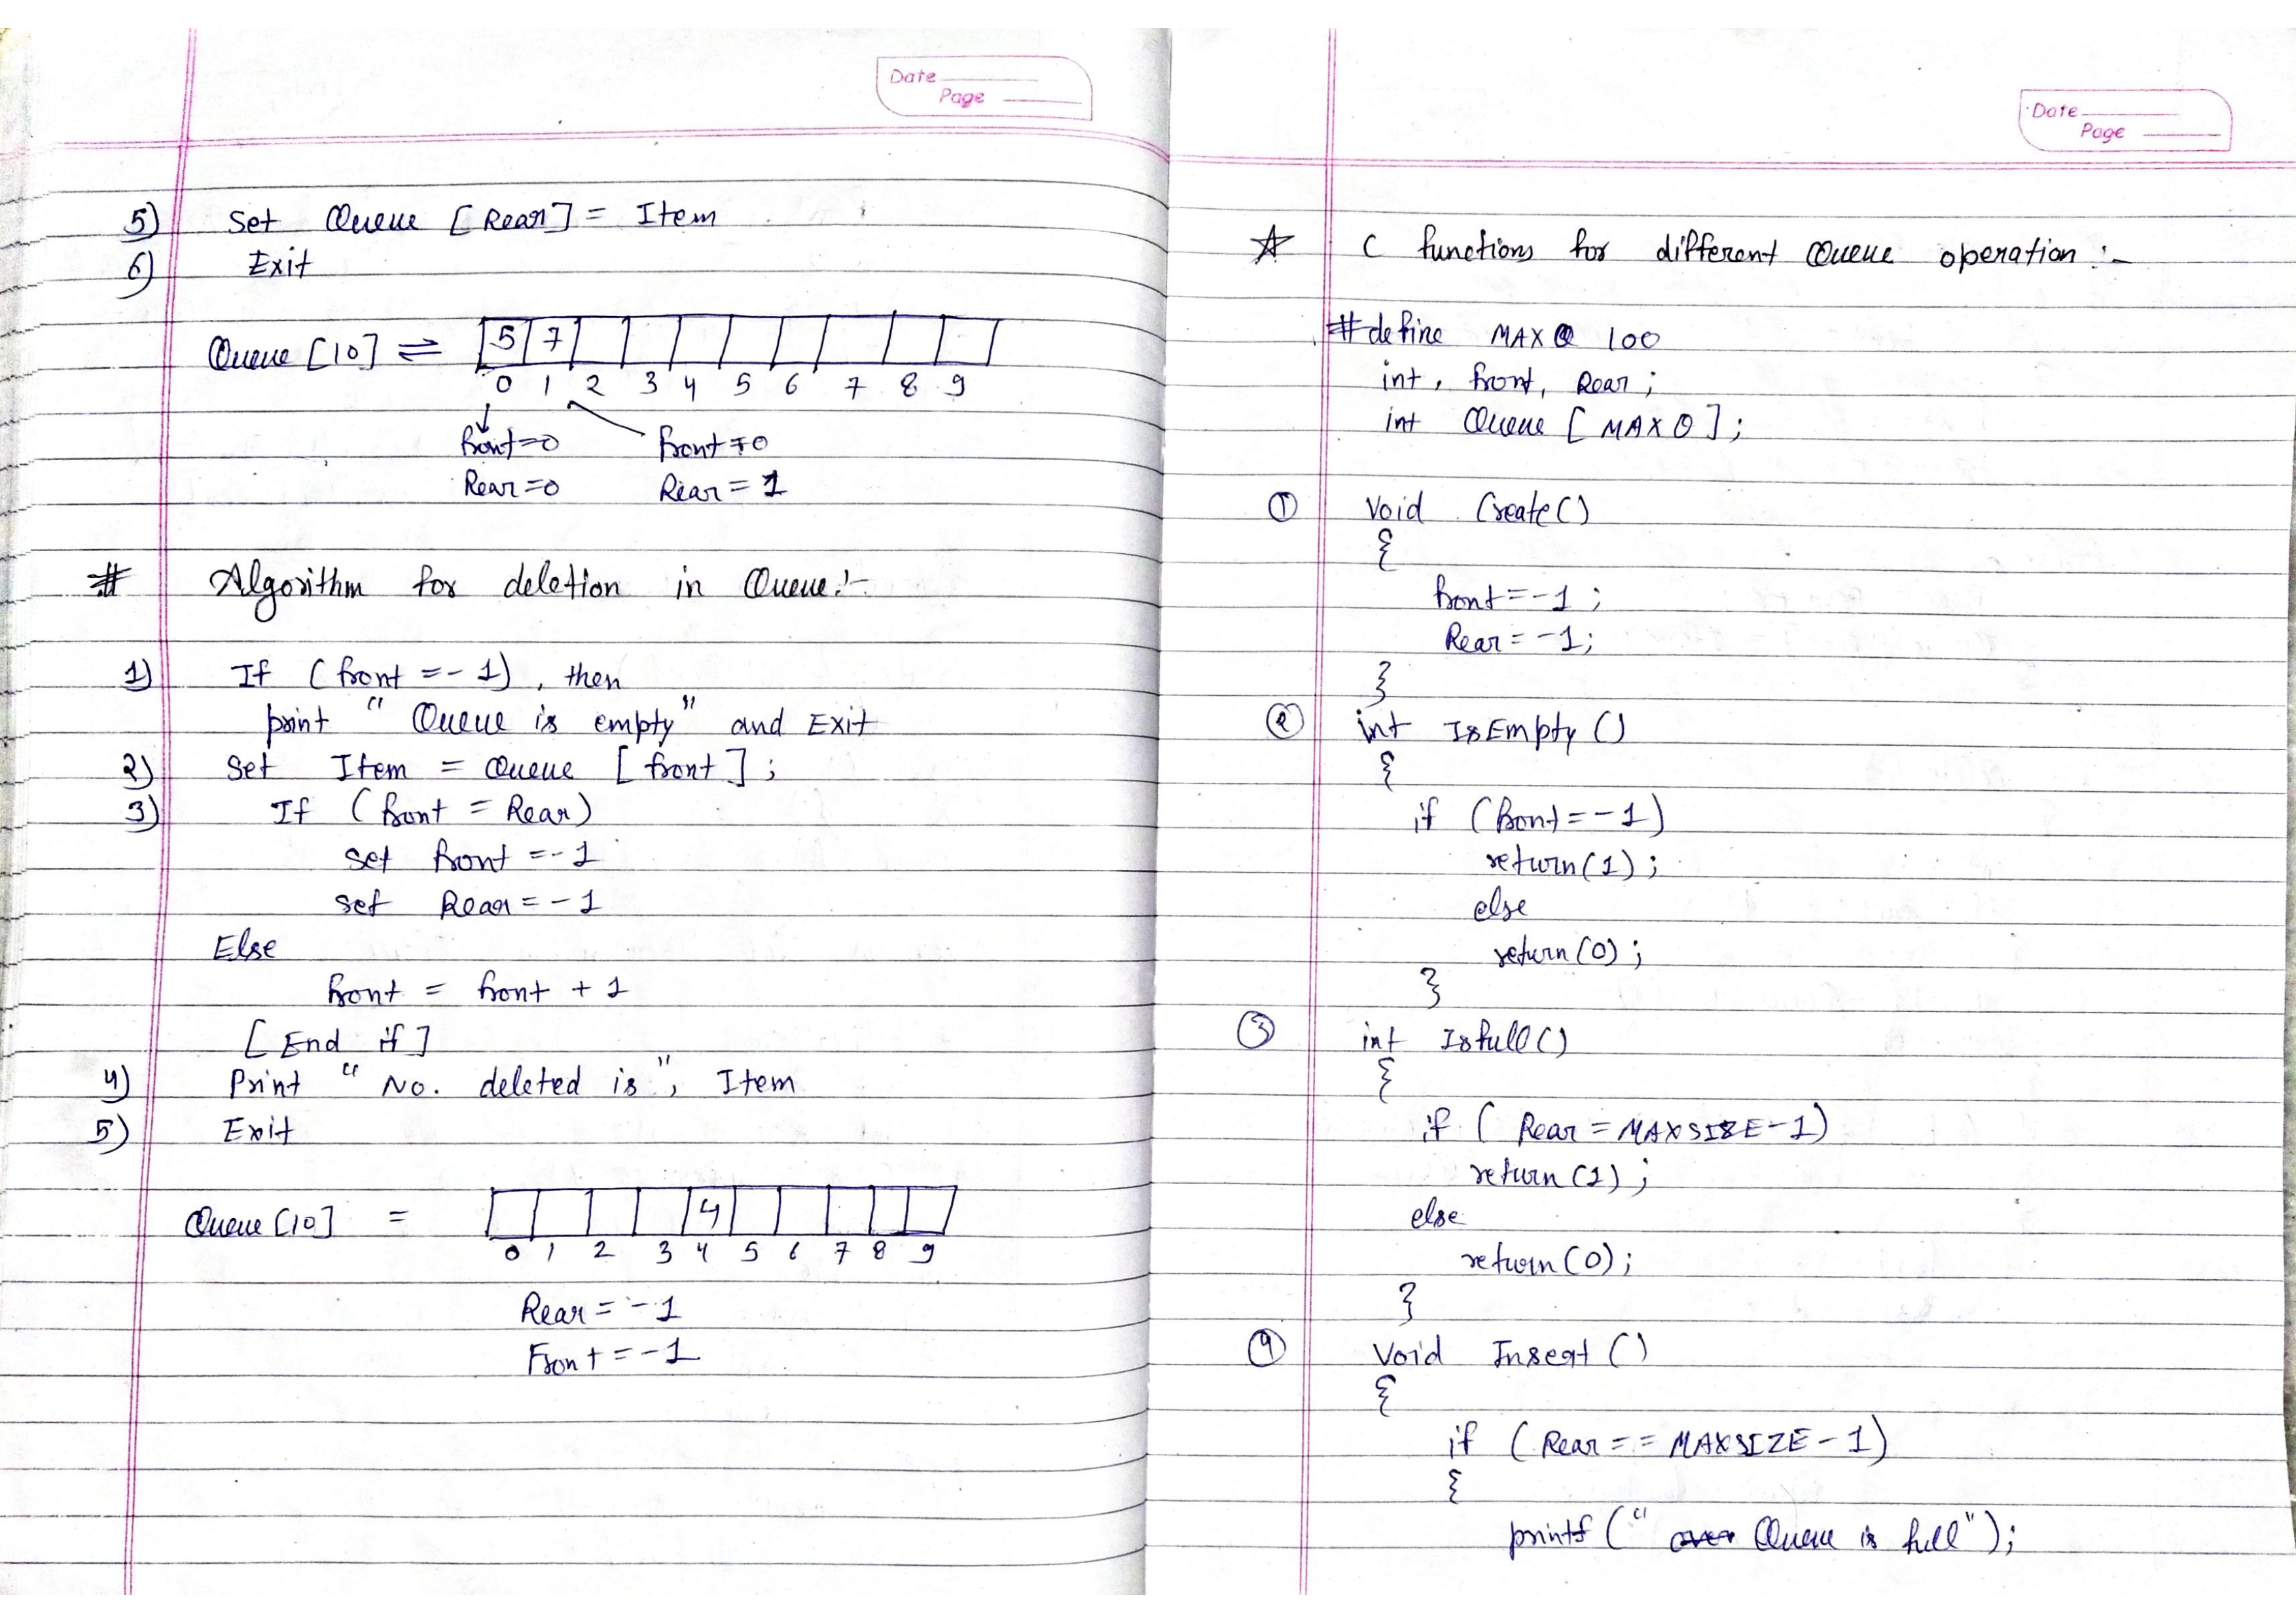 Date
Page
5) Set Queue [Rear] = Item
6) Exit
Queue [10] ⇌ 5 7
0 1 2 3 4 5 6 7 8 9
front=0 front=0
Rear=0 Rear = 1
# Algorithm for deletion in Queue:-
1) If (front = -1), then
print "Queue is empty" and Exit
2) Set Item = Queue [front];
3) If (front = Rear)
set front = -1
set Rear = -1
Else
front = front + 1
[End if]
4) Print "No. deleted is", Item
5) Exit
Queue [10] = 4
0 1 2 3 4 5 6 7 8 9
Rear = -1
Front = -1
Date
Page
☆ C functions for different Queue operation :-
#define MAXQ 100
int, front, Rear;
int Queue [MAXQ];
① Void Create()
{
front = -1;
Rear = -1;
}
② int IsEmpty ()
{
if (front = -1)
return(1);
else
return(0);
}
③ int Isfull()
{
if ( Rear = MAXSIZE-1)
return (1);
else
return (0);
}
④ Void Insert ()
{
if (Rear == MAXSIZE-1)
{
printf (" Queue is full");